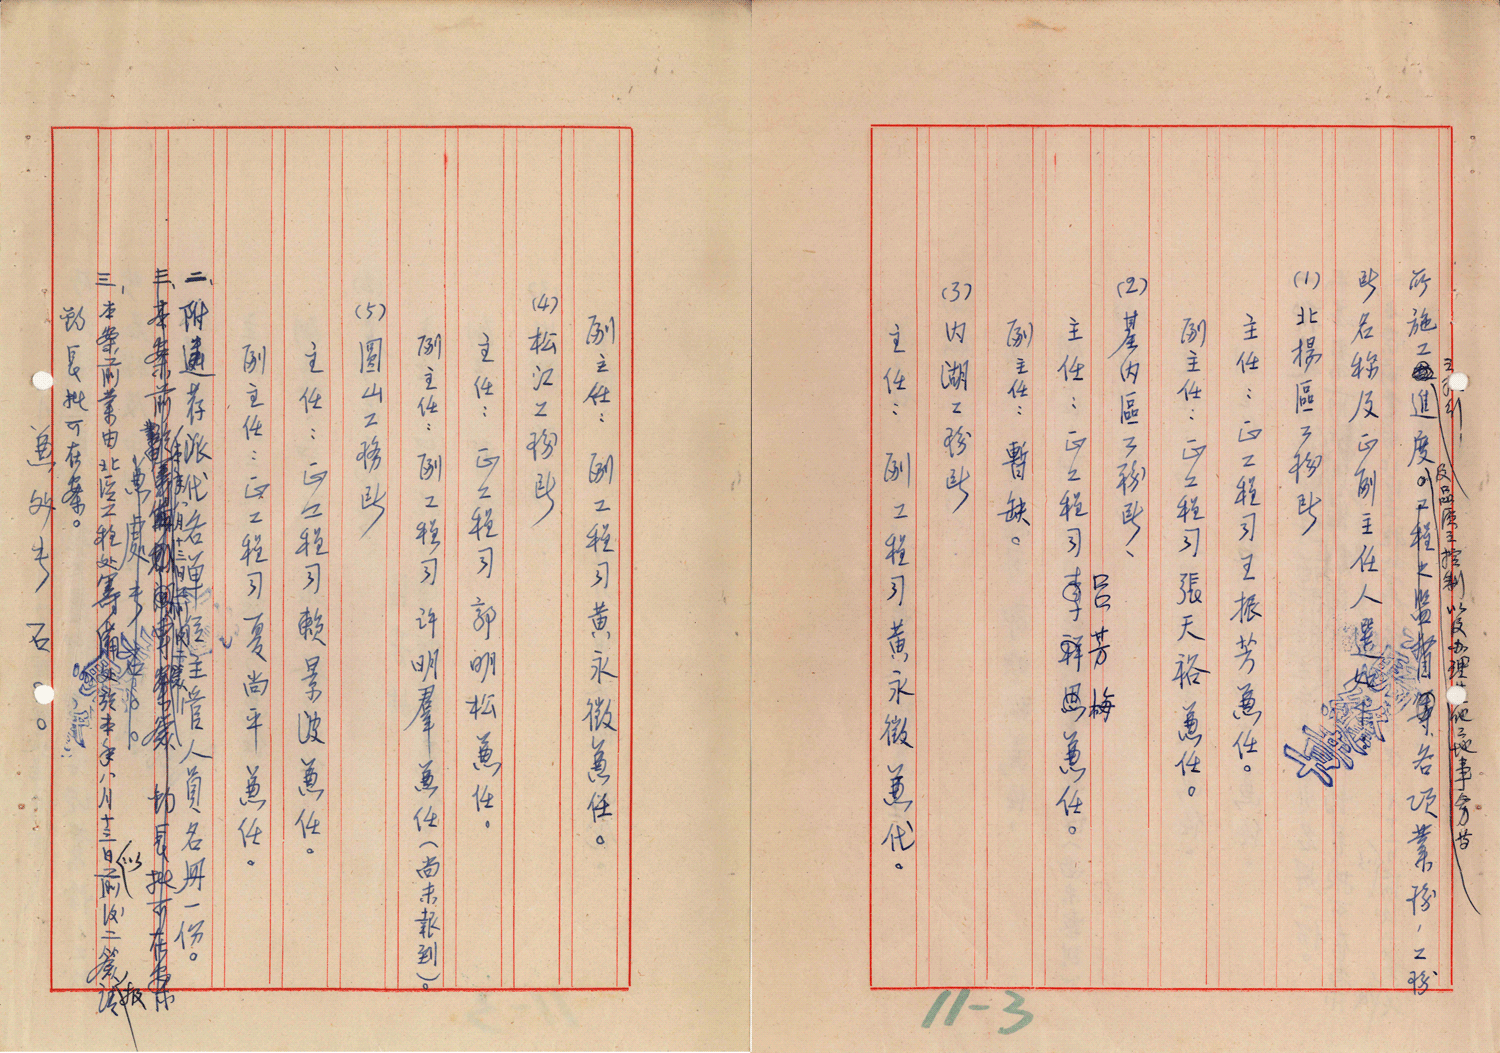 所施工進度。工程之監督等各項業務，工務
及品質之控制以及办理其他之事务
所名称及正副主任人選如下：
(1)北揚區工務所
主任：正工程司王振芳兼任。
副主任：正工程司張天裕兼任。
(2)基內區工務所、
主任：正工程司李祥恩兼任。
呂芳梅
副主任：暫缺。
(3)內湖工務所
主任：副工程司黃永徵兼代。
副主任：副工程司黃永徵兼任。
(4)松江工務所
主任：正工程司郭明松兼任。
副主任：副工程司許明羣兼任(尚未報到)。
(5)圓山工務所
主任：正工程司賴景波兼任。
副主任：正工程司夏尚平兼任。
二、附遴荐派代名單暨主管人員名冊一份。
三、本案前
鈞長批可在案
三、本案前業由北區工程处籌備处於本年八月十三日以前後二簽請
鈞長批可在案。
兼处長石。。
11-3